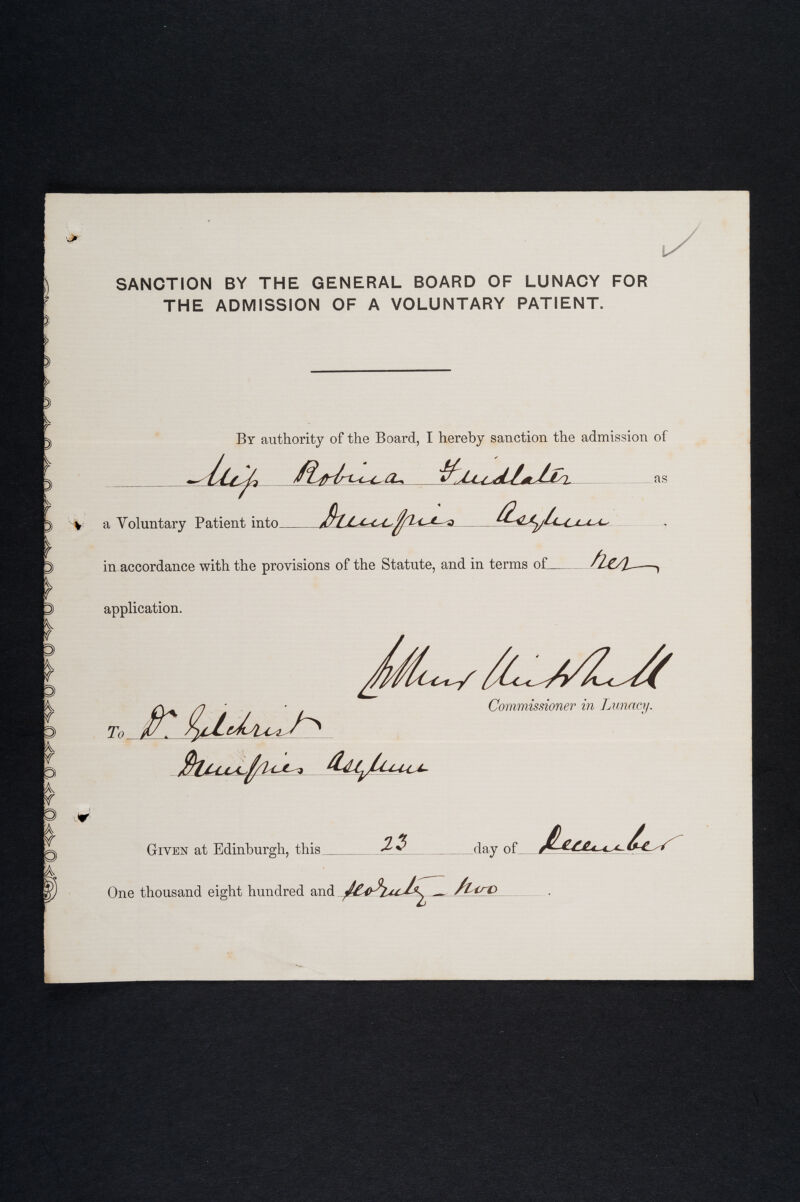 SANCTION BY THE GENERAL BOARD OF LUNACY FOR
THE ADMISSION OF A VOLUNTARY PATIENT.
BY authority of the Board, I hereby sanction the admission of
Miss Robina Findlater as
a Voluntary Patient into Dumfries Asylum .
in accordance with the provisions of the Statute, and in terms of her
application.
Arthur Mitchell
Commissioner in Lunacy.
To Dr. Gilchrist
Dumfries Asylum
GIVEN at Edinburgh, this 23 day of December
One thousand eight hundred and seventy-two .